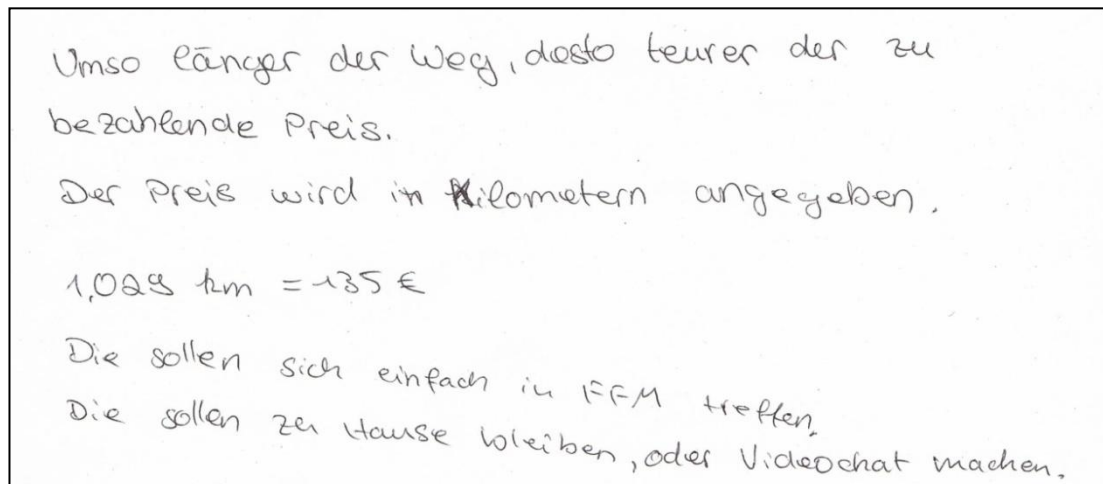 Umso länger der Weg, desto teurer der zu
bezahlende Preis.
Der Preis wird in Kilometern angegeben.
1,029 km = 135 €
Die sollen sich einfach in FFM treffen.
Die sollen zu Hause bleiben, oder Videochat machen.